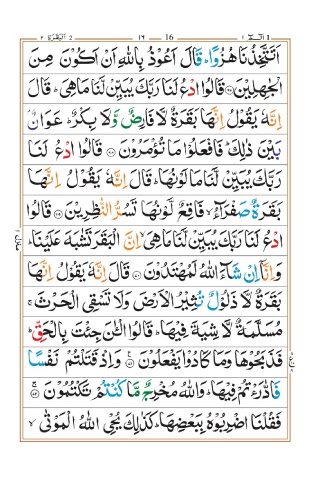 البقرة ٢ ١٦ 16 الٓمّٓ ١
اَتَتَّخِذُنَا هُزُوًا ؕ قَالَ اَعُوْذُ بِاللّٰهِ اَنْ اَكُوْنَ مِنَ
الْجٰهِلِيْنَ ۝ قَالُوا ادْعُ لَنَا رَبَّكَ يُبَيِّنْ لَّنَا مَا هِيَ ؕ قَالَ
اِنَّهٗ يَقُوْلُ اِنَّهَا بَقَرَةٌ لَّا فَارِضٌ وَّلَا بِكْرٌ ؕ عَوَانٌۢ
بَيْنَ ذٰلِكَ ؕ فَافْعَلُوْا مَا تُؤْمَرُوْنَ ۝ قَالُوا ادْعُ لَنَا
رَبَّكَ يُبَيِّنْ لَّنَا مَا لَوْنُهَا ؕ قَالَ اِنَّهٗ يَقُوْلُ اِنَّهَا
بَقَرَةٌ صَفْرَآءُ ۙ فَاقِعٌ لَّوْنُهَا تَسُرُّ النّٰظِرِيْنَ ۝ قَالُوا
ادْعُ لَنَا رَبَّكَ يُبَيِّنْ لَّنَا مَا هِيَ ۙ اِنَّ الْبَقَرَ تَشٰبَهَ عَلَيْنَا ؕ
وَاِنَّاۤ اِنْ شَآءَ اللّٰهُ لَمُهْتَدُوْنَ ۝ قَالَ اِنَّهٗ يَقُوْلُ اِنَّهَا
بَقَرَةٌ لَّا ذَلُوْلٌ تُثِيْرُ الْاَرْضَ وَلَا تَسْقِي الْحَرْثَ ۚ
مُسَلَّمَةٌ لَّا شِيَةَ فِيْهَا ؕ قَالُوا الْـٰٔنَ جِئْتَ بِالْحَقِّ ؕ
فَذَبَحُوْهَا وَمَا كَادُوْا يَفْعَلُوْنَ ۝ وَاِذْ قَتَلْتُمْ نَفْسًا
فَادّٰرَءْتُمْ فِيْهَا ؕ وَاللّٰهُ مُخْرِجٌ مَّا كُنْتُمْ تَكْتُمُوْنَ ۝
فَقُلْنَا اضْرِبُوْهُ بِبَعْضِهَا ؕ كَذٰلِكَ يُحْيِ اللّٰهُ الْمَوْتٰى ۙ